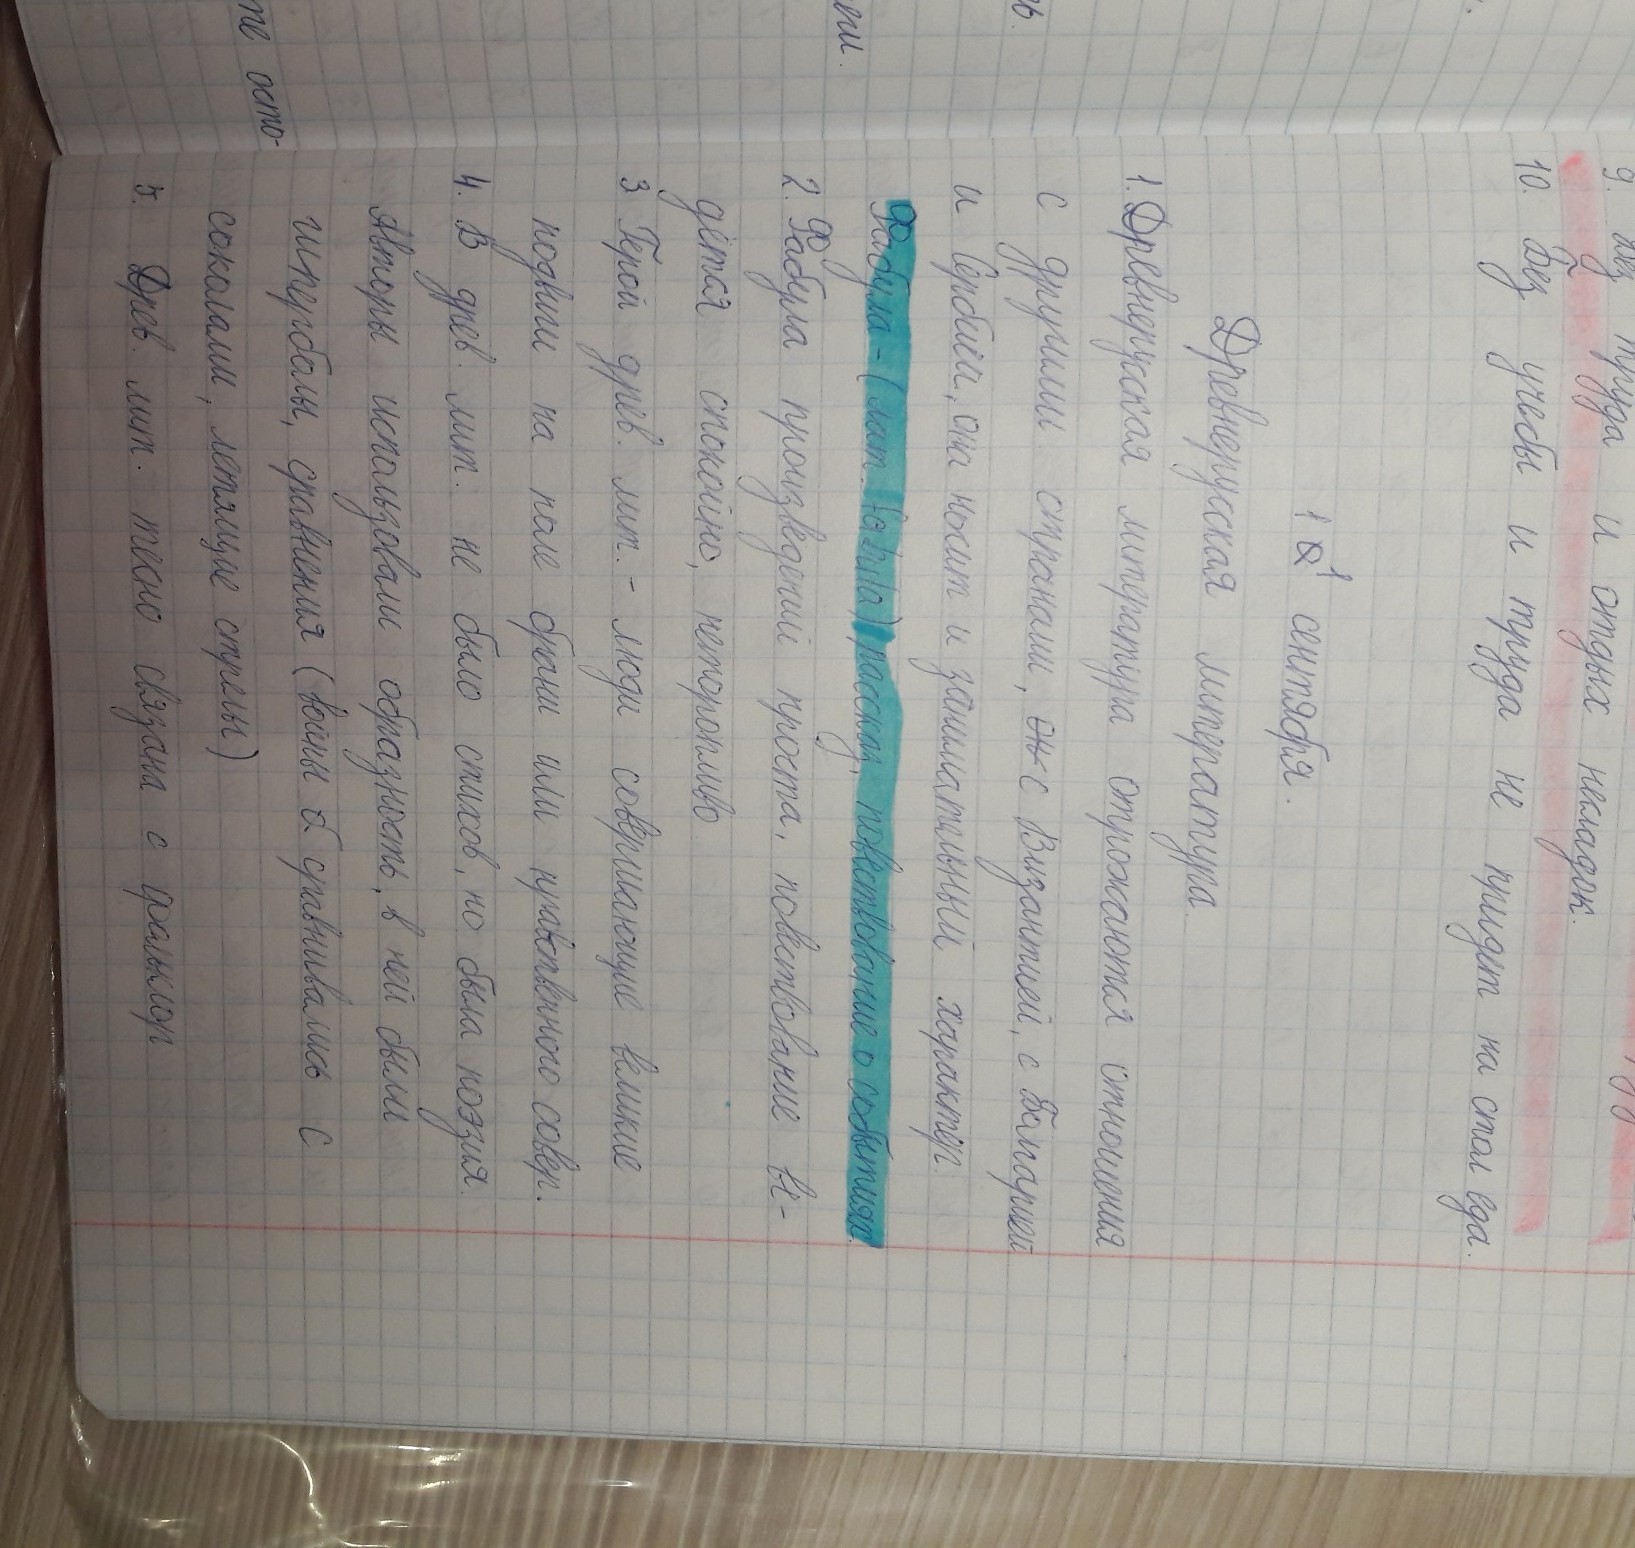 9. Без труда и отдых несладок.
10. Без учебы и труда не придет на стол еда.
11 сентября.
Древнерусская литература.
1. Древнерукская литература отрожаются отношения
с другими странами, с Византией, с Болгарией
и Сербией, она носит и занимательный характер.
Фабула - (лат. fabula) рассказ, повествование о событиях.
2. Фабула произведений проста, повествование ве-
дётся спокойно, неторопливо.
3 Герой древ. лит. - люди совершающие великие
подвиги на поле брани или нравственного совер.
4. В древ. лит. не было стихов, но была поэзия.
Авторы использовали образность, в ней были
гиперболы, сравнения (войны сравнивались с
соколами, летящие стрелы)
5. Древ. лит. тесно связана с фольклор
те осто-